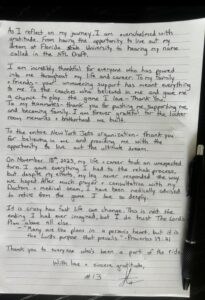 As I reflect on my journey, I am overwhelmed with
gratitude. From having the opportunity to live out my
dream at Florida State University to hearing my name
called in the NFL Draft.
I am incredibly thankful for everyone who has poured
into me throughout my life and career. To my family
& friends - your unwavering support has meant everything
to me. To the coaches who believed in me and gave me
a chance to play the game I love - Thank You.
To my teammates - thank you for pushing me, supporting me
and becoming family. I am forever grateful for the locker
room memories & brotherhood we built.
To the entire New York Jets organization - thank you
for believing in me and providing me with the
opportunity to live out the ultimate dream.
On November 18th, 2023, my life & career took an unexpected
turn. I gave everything I had to the rehab process,
but despite my efforts my leg never responded the way
we hoped. After much prayer & consultation with my
Doctors & medical team, I have been medically advised
to retire from the game I love so deeply.
It is crazy how fast life can change. This is not the
ending I had ever imagined, but I do trust The Lord's
Plan above all else.
- "Many are the plans in a person's heart, but it is
the Lord's purpose that prevails" - Proverbs 19:21
Thank you to everyone who's been a part of the ride.
With love & sincere gratitude,
#13